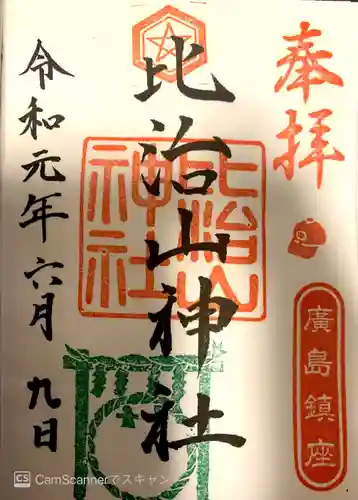 奉拝
廣島鎮座
比治山神社
比治山
神社
令和元年六月九日
CS CamScannerでスキャン